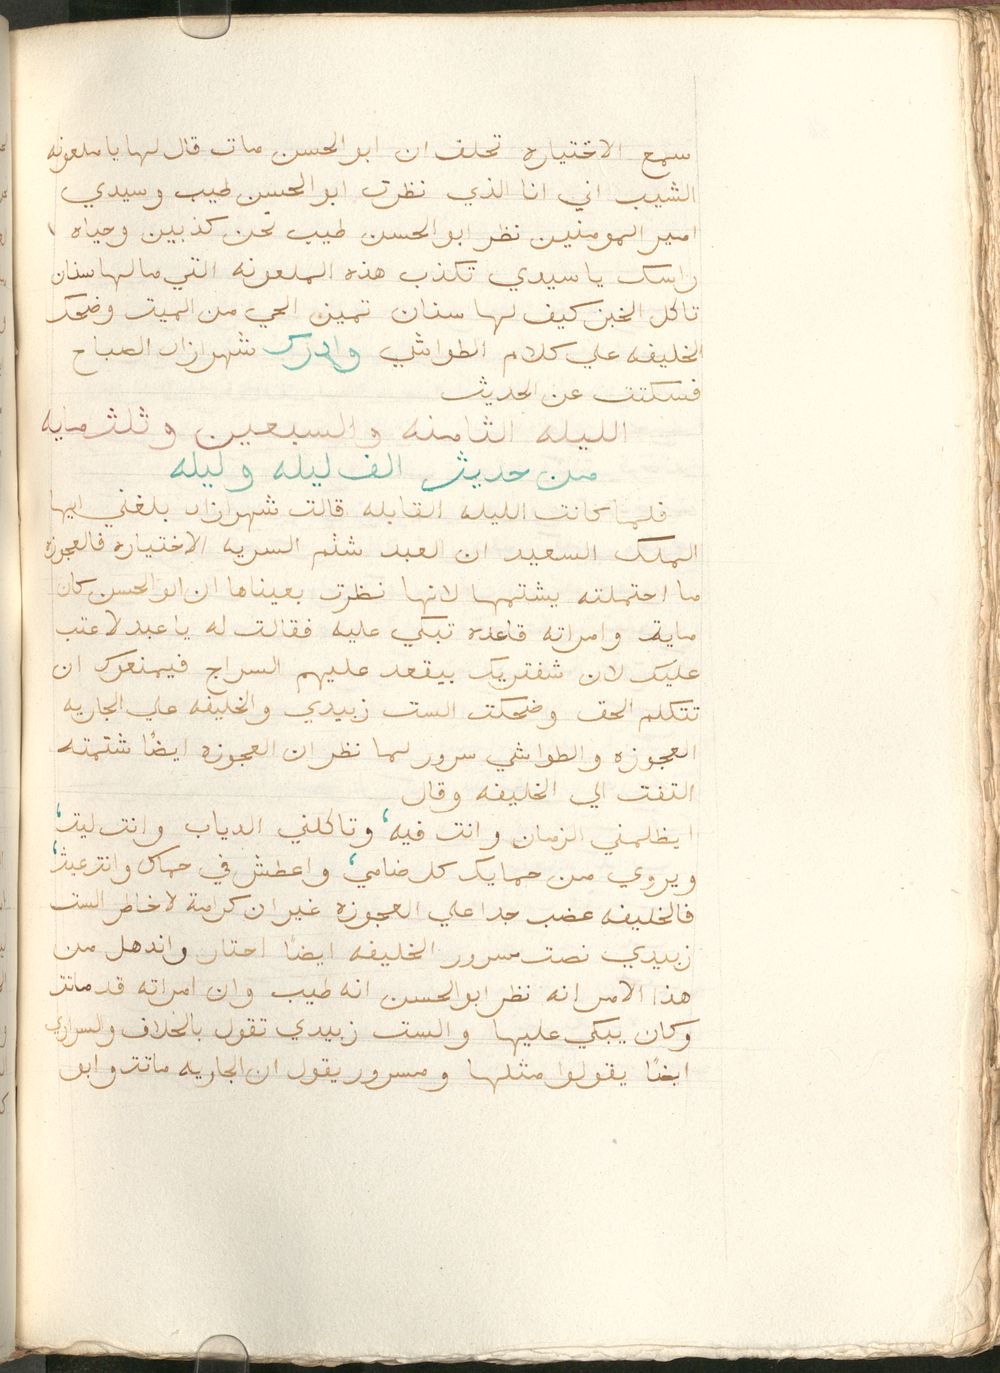 سمع الاختياره تحلف ان ابو الحسن مات قال لها يا ملعونه
الشيب اني انا الذي نظرت ابو الحسن طيب وسيدي
امير المومنين نظر ابو الحسن طيب نحن كذبين وحياه
راسك يا سيدي تكذب هذه الملعونه التي ما لها سنان
تاكل الخبز كيف لها سنان تميز الحي من الميت وضحك
الخليفه علي كلام الطواشي وادرك شهرازاد الصباح
فسكتت عن الحديث
الليله الثامنه والسبعين وثلثمايه
من حديث الف ليله وليله
فلما كانت الليله القابله قالت شهرازاد بلغني ايها
الملك السعيد ان العبد شتم السريه الاختياره فالعجوزه
ما احتملته يشتمها لانها نظرت بعيناها ان ابو الحسن كان
مايت وامراته قاعده تبكي عليه فقالت له يا عبد لا عتب
عليك لان شفتريك بيقعد عليهم السراج فيمنعوك ان
تتكلم الحق وضحكت الست زبيدي والخليفه علي الجاريه
العجوزه والطواشي سرور لما نظر ان العجوزه ايضًا شتمته
التفت الي الخليفه وقال
ايظلمني الزمان وانت فيه، وتاكلني الدياب وانت ليت،
ويروي من حمايك كل ضامي، واعطش في حماك وانت غيث،
فالخليفه غضب جدا علي العجوزه غير ان كرامة لاخاطر الست
زبيدي نصت مسرور الخليفه ايضًا احتار واندهل من
هذا الامر انه نظر ابو الحسن انه طيب وان امراته قد ماتت
وكان يبكي عليها والست زبيدي تقول بالخلاف والسراري
ايضًا يقولوا مثلها ومسرور يقول ان الجاريه ماتت وابو